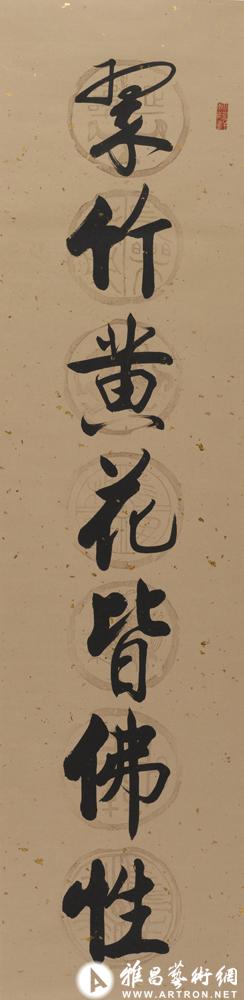 翠竹黄花皆佛性
雅昌藝術網
WWW.ARTRON.NET